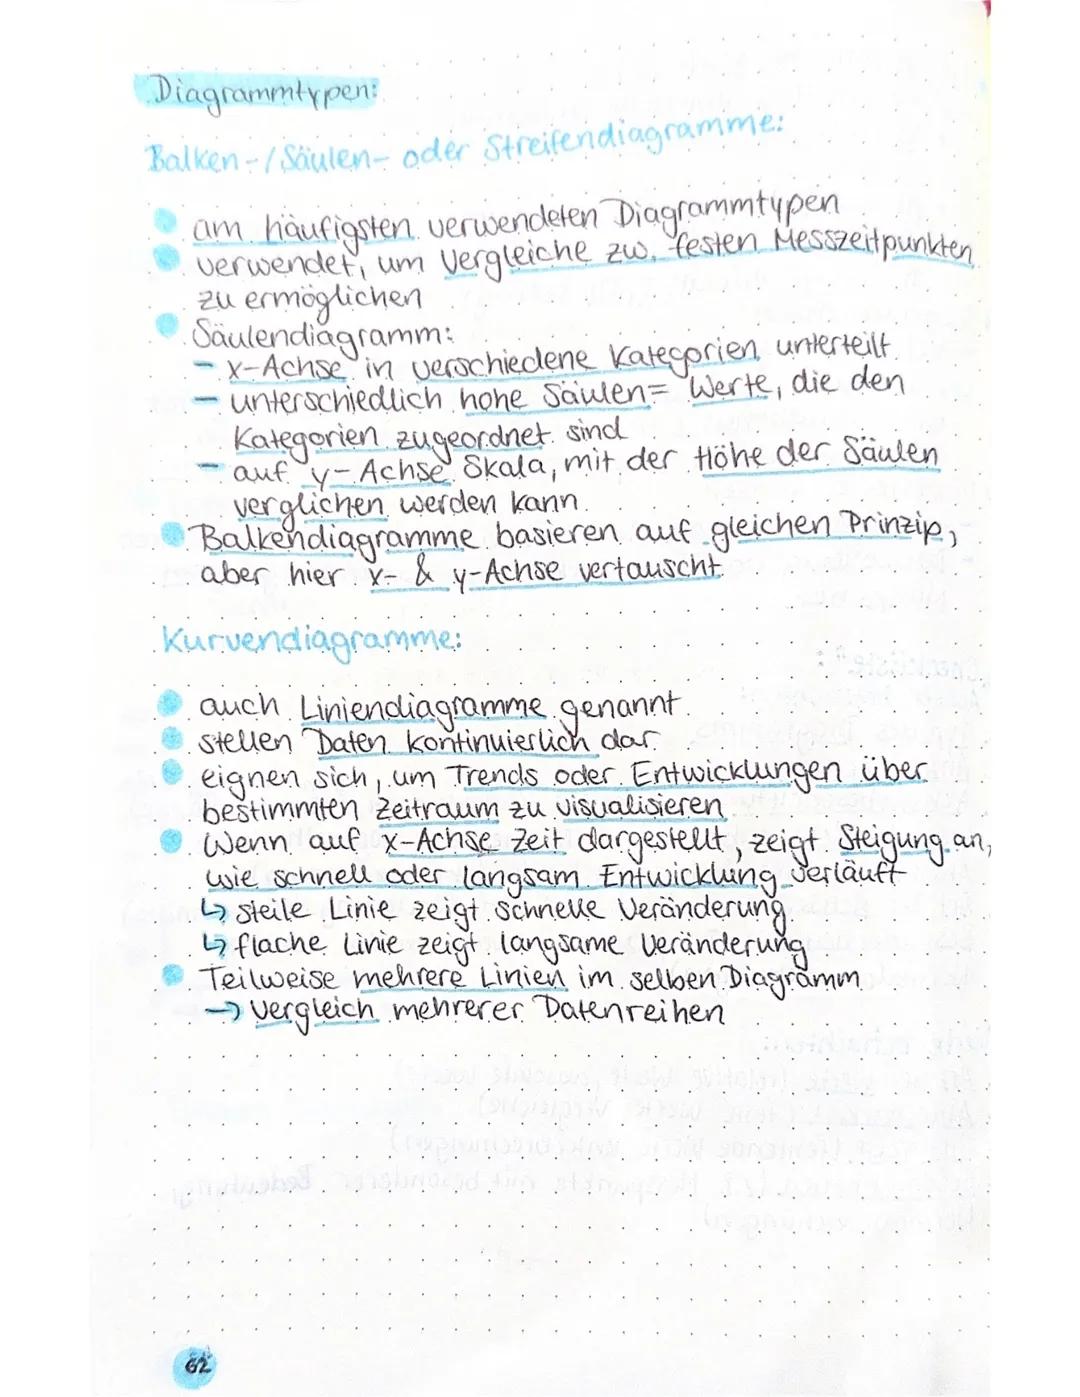 Diagrammtypen:
Balken-/Säulen- oder Streifendiagramme:
am häufigsten verwendeten Diagrammtypen
verwendet, um Vergleiche zw. festen Messzeitpunkten
zu ermöglichen
Säulendiagramm:
- x-Achse in verschiedene Kategorien unterteilt
- unterschiedlich hohe Säulen= Werte, die den
Kategorien zugeordnet sind
- auf y-Achse Skala, mit der Höhe der Säulen
verglichen werden kann
Balkendiagramme basieren auf gleichen Prinzip,
aber hier x- & y-Achse vertauscht
Kurvendiagramme:
auch Liniendiagramme genannt
stellen Daten kontinuierlich dar
eignen sich, um Trends oder Entwicklungen über
bestimmten Zeitraum zu visualisieren
Wenn auf x-Achse Zeit dargestellt, zeigt Steigung an,
wie schnell oder langsam Entwicklung verläuft
↳ steile Linie zeigt schnelle Veränderung
↳ flache Linie zeigt langsame Veränderung
Teilweise mehrere Linien im selben Diagramm
→ Vergleich mehrerer Datenreihen
62